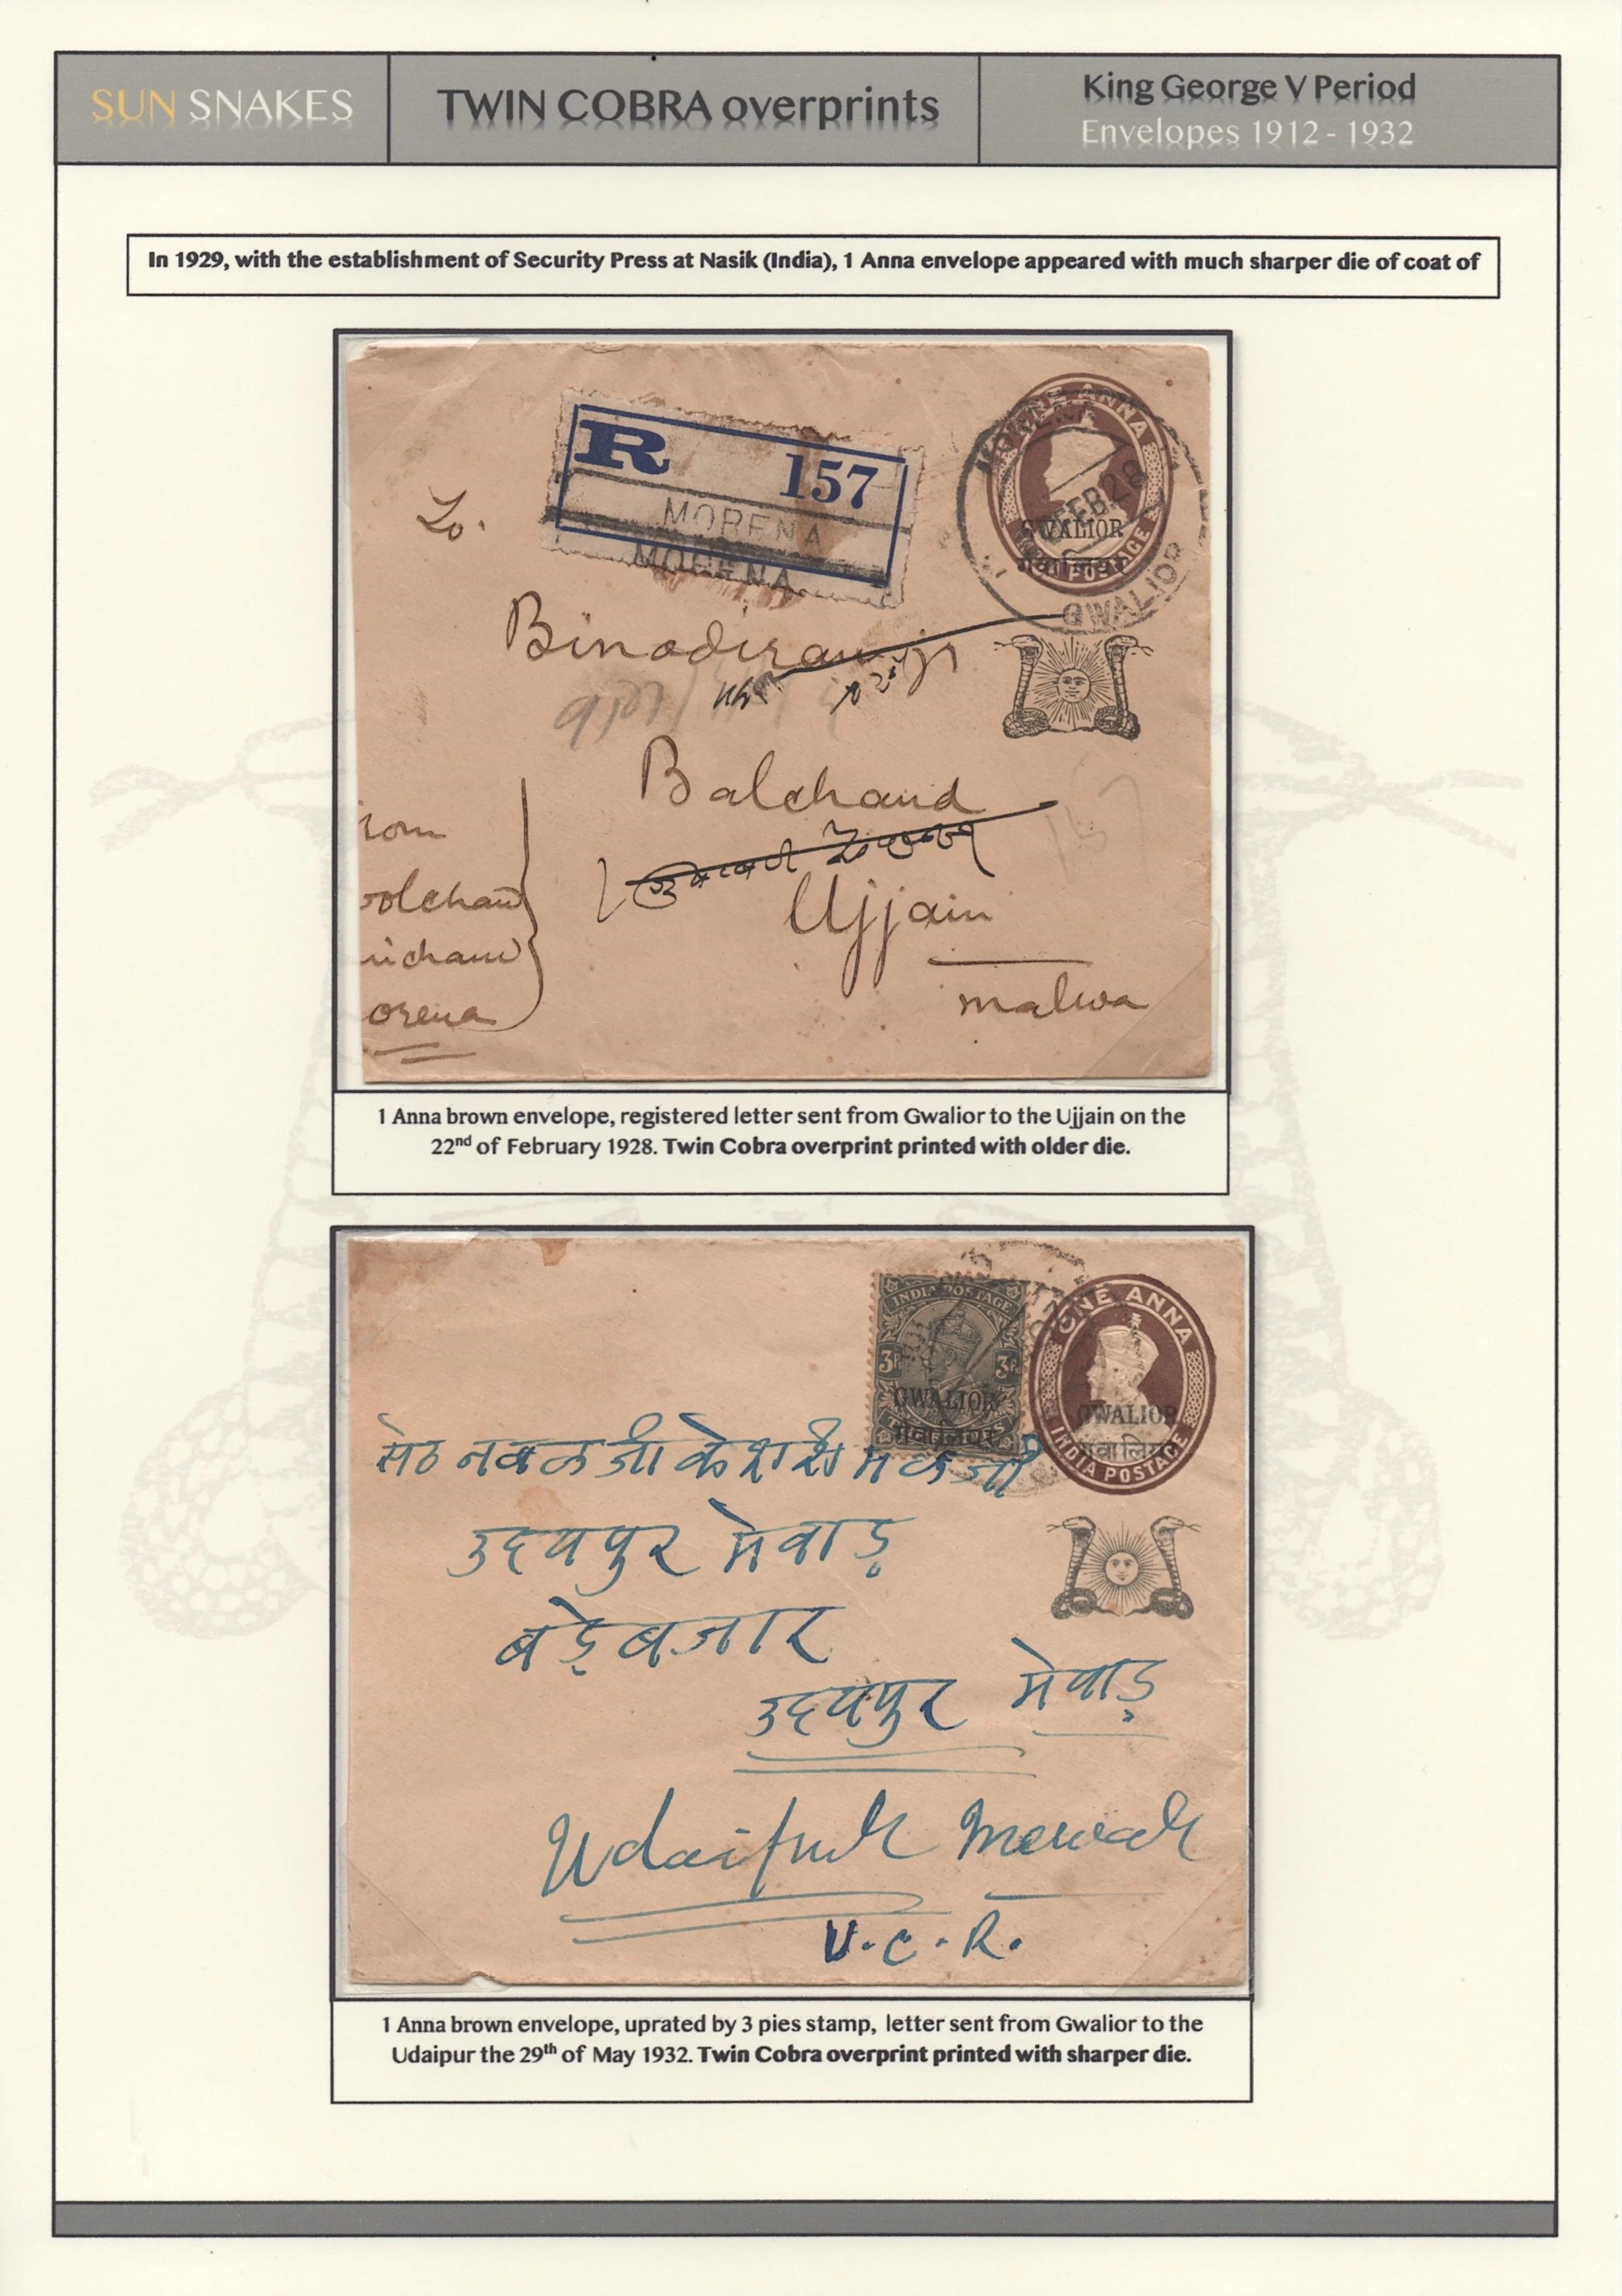 SUN SNAKES
TWIN COBRA overprints
King George V Period
Envelopes 1912 - 1932
In 1929, with the establishment of Security Press at Nasik (India), 1 Anna envelope appeared with much sharper die of coat of
R 157
MORENA
MORENA
ONE ANNA
FEB 28
GWALIOR
POSTAGE
GWALIOR
To.
Binodiramji
Balchand
Ujjain
malwa
rom
olchand
richand
orena
1 Anna brown envelope, registered letter sent from Gwalior to the Ujjain on the
22nd of February 1928. Twin Cobra overprint printed with older die.
INDIA POSTAGE
3P 3P
GWALIOR
ONE ANNA
GWALIOR
ग्वालियर
INDIA POSTAGE
सेठ नवल जी के
उदयपुर मेवाड़
बड़े बजार
उदयपुर मेवाड़
Udaipur Mewar
U.C.R.
1 Anna brown envelope, uprated by 3 pies stamp, letter sent from Gwalior to the
Udaipur the 29th of May 1932. Twin Cobra overprint printed with sharper die.